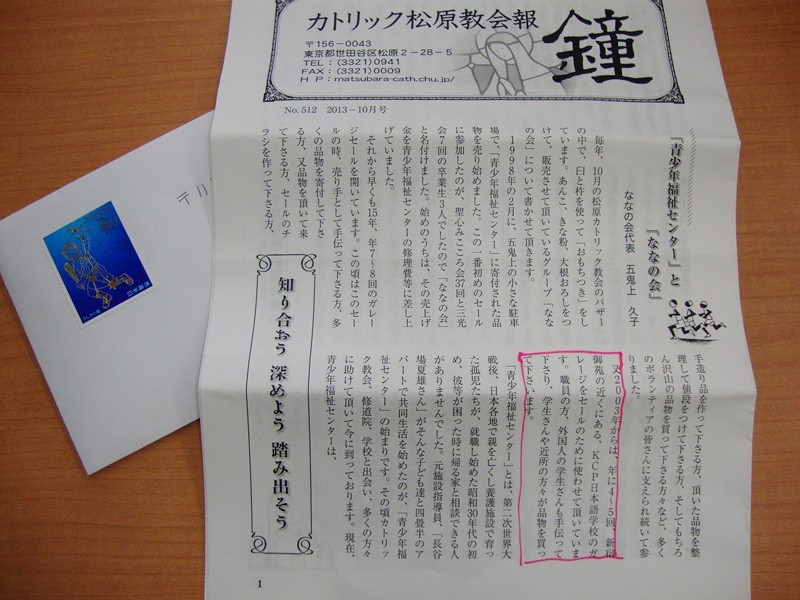 カトリック松原教会報
鐘
〒156-0043
東京都世田谷区松原2-28-5
TEL:(3321)0941
FAX:(3321)0009
HP:matsubara-cath.chu.jp/
No.512 2013-10月号
「青少年福祉センター」と
「ななの会」
ななの会代表 五鬼上 久子
毎年、10月の松原カトリック教会のバザー
の中で、臼と杵を使って「おもちつき」をし
ています。あんこ、きな粉、大根おろしをつ
けて、販売させて頂いているグループ「なな
の会」について書かせて頂きます。
1998年の2月に、五鬼上の小さな駐車
場で、「青少年福祉センター」に寄付された品
物を売り始めました。この一番初めのセール
に参加したのが、聖心みこころ会37回と三光
会7回の卒業生3人でしたので「ななの会」
と名付けました。始めのうちは、その売上げ
金を青少年福祉センターの修理費等に差し上
げていました。
それから早くも15年、年7~8回のガレー
ジセールを開いています。この頃はこのセー
ルの時、売り手として手伝って下さる方、多
くの品物を寄付して下さ
る方、又品物を頂いて米
て下さる方、セールのチ
ラシを作って下さる方、
知り合おう 深めよう 踏み出そう
手造り品を作って下さる方、頂いた品物を整
理して値段をつけて下さる方、そしてもちろ
ん沢山の品物を買って下さる方々など、多く
のボランティアの皆さんに支えられ続いて参
りました。
又2003年からは、年に4~5回、新宿
御苑の近くにある、KCP日本語学校のガ
レージをセールのために使わせて頂いていま
す。職員の方、外国人の学生さんも手伝って
下さり、学生さんや近所の方々が品物を買っ
て下さいます。
「青少年福祉センター」とは、第二次世界大
戦後、日本各地で親を亡くし養護施設で育っ
た孤児たちが、就職し始めた昭和30年代の初
め、彼等が困った時に帰る家と相談できる人
がありませんでした。元施設指導員、「長谷
場夏雄さん」がそんな子ども達と四畳半のア
パートで共同生活を始めたのが、「青少年福
祉センター」の始まりです。その頃カトリッ
ク教会、修道院、学校と出会い、多くの方々
に助けて頂いて今に到っております。現在、
青少年福祉センターは、
1
〒
日本郵便